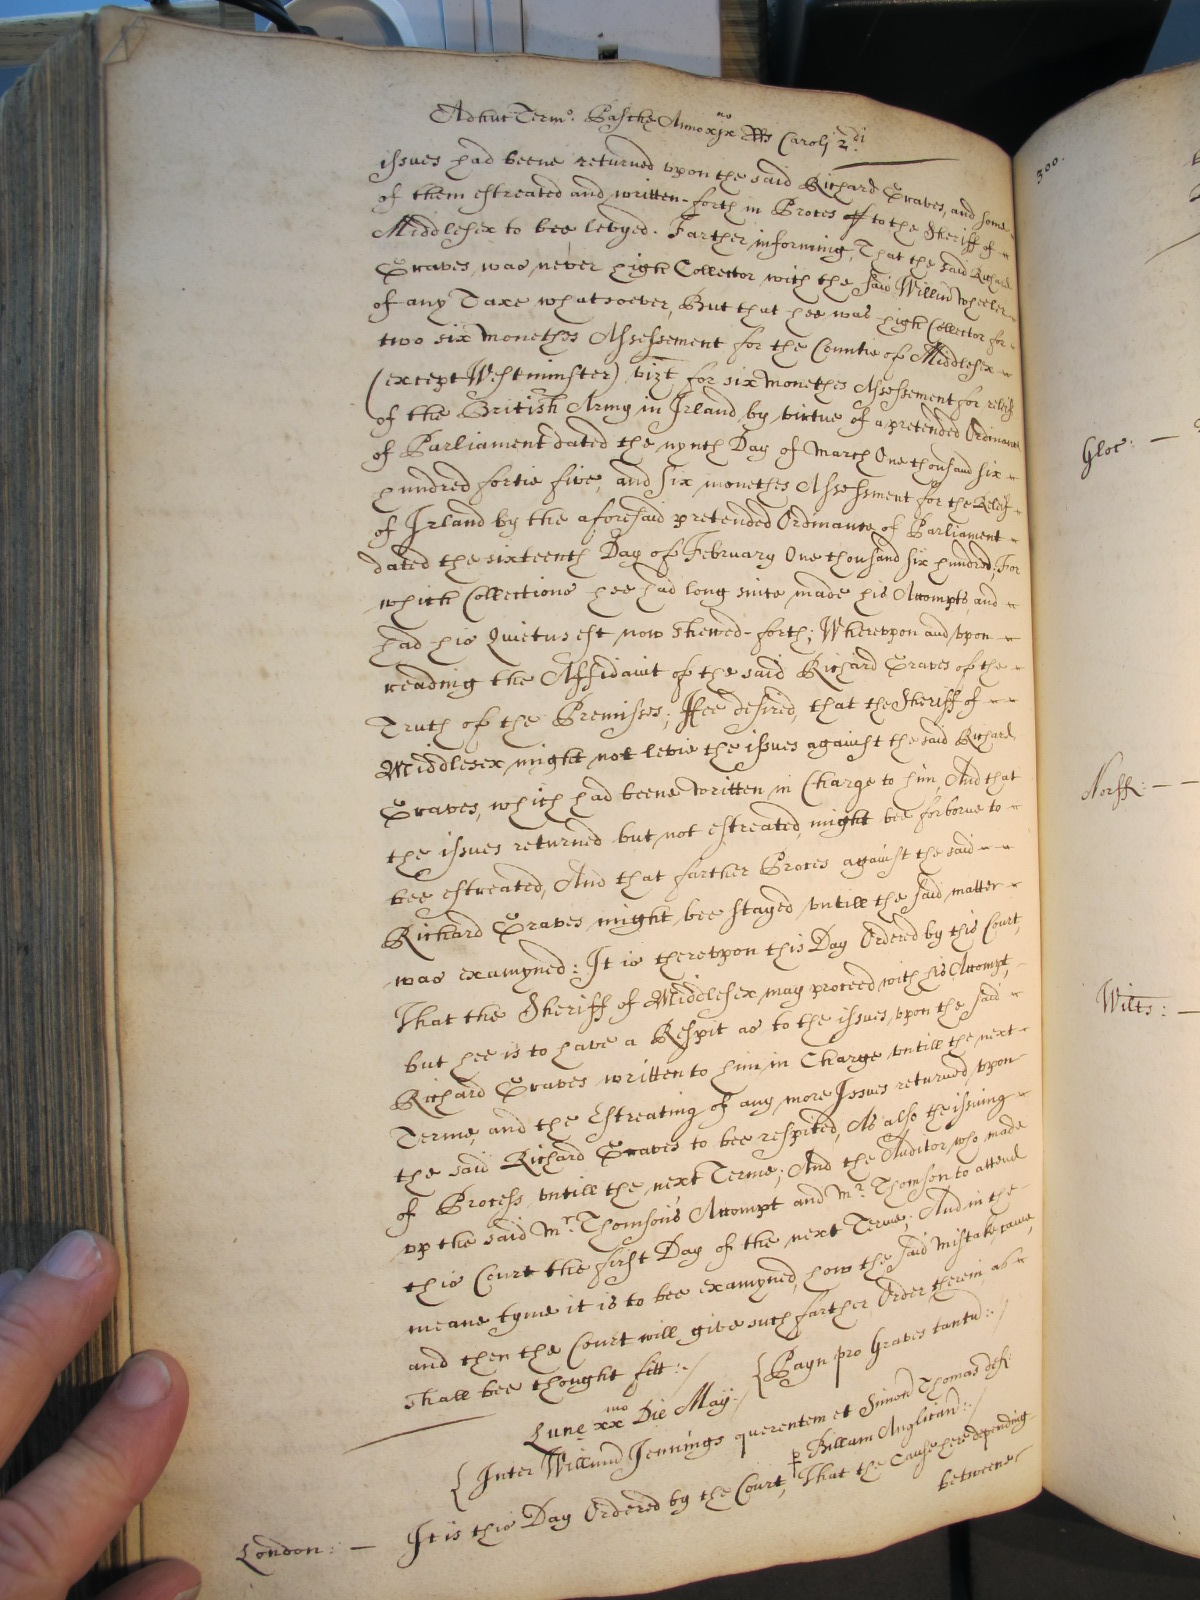 Adhuc Term.o Pasche Anno xix no R Rs Caroli 2 di
issues had beene returned vpon the said Richard Graves, and some
of them estreated and written-forth in Proces to the Sheriff of
Middlesex to bee levyed. Farther informing, That the said Richard
Graves was never high Collector with the said Willm Wheeler
of any Taxe whatsoever, But that hee was high Collector for
two six moneths Assessement for the Countie of Middlesex
(except Westminster) vizt, for six moneths Assessement for releif
of the British Army in Irland by virtue of a pretended Ordinance
of Parliament dated the nynth Day of March One thousand six
hundred fortie five, and six moneths Assessment for the Releif
of Irland by the aforesaid pretended Ordinance of Parliament
dated the sixteenth Day of February One thousand six hundred; For
which Collections hee had long since made his Accompts, and
had his Quietus est now shewed-forth; Wherevpon and vpon
reading the Affidavit of the said Richard Graves of the
Truth of the Premisses; Hee desired, that the Sheriff of
Middlesex might not levie the issues against the said Richard
Graves, which had beene written in Charge to him, And that
the issues returned but not estreated, might bee forborne to
bee estreated, And that farther Proces against the said
Richard Graves might bee stayed vntill the said matter
was examyned: It is therevpon this Day Ordered by this Court,
That the Sheriff of Middlesex may proceed with his Accompt,
but hee is to have a Respit as to the issues vpon the said
Richard Graves written to him in Charge vntill the next
Terme, and the Estreating of any more Issues returned vpon
the said Richard Graves to bee respited, As also the issuing
of Process vntill the next Terme; And the Auditor who made
vp the said Mr. Thomsons Accompt and Mr. Thomson to attend
this Court the first Day of the next Terme; And in the
meane tyme it is to bee examyned, how the said mistake came,
and then the Court will give such farther Order therein, as
shall bee thought fitt:./ {Payn pro Graves tantu:./
Lune xx mo Die May./
{Inter Willmum Jennings querentem et Simon Thomas def:
p Billam Anglican:./
London: — It is this Day Ordered by the Court, That the Cause here depending
betweene
300.
Gloc: —
Norff: —
Wilts: —